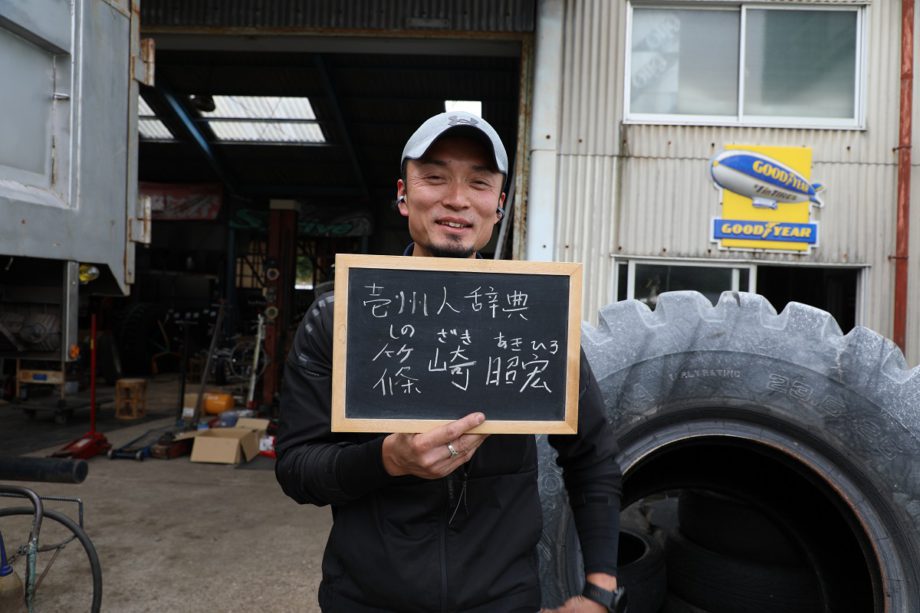 壱州人辞典
しの ざき あきひろ
篠崎昭宏
GOODYEAR
#1 in Tires
GOODYEAR